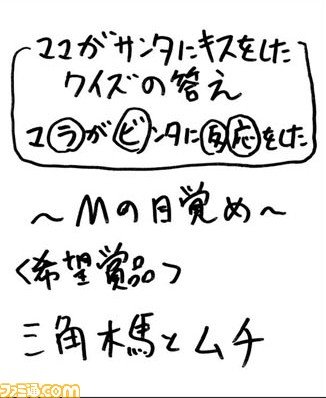 ママがサンタにキスをした
クイズの答え
マラがビンタに反応をした
～Mの目覚め～
<希望賞品>
三角木馬とムチ
ファミ通.com